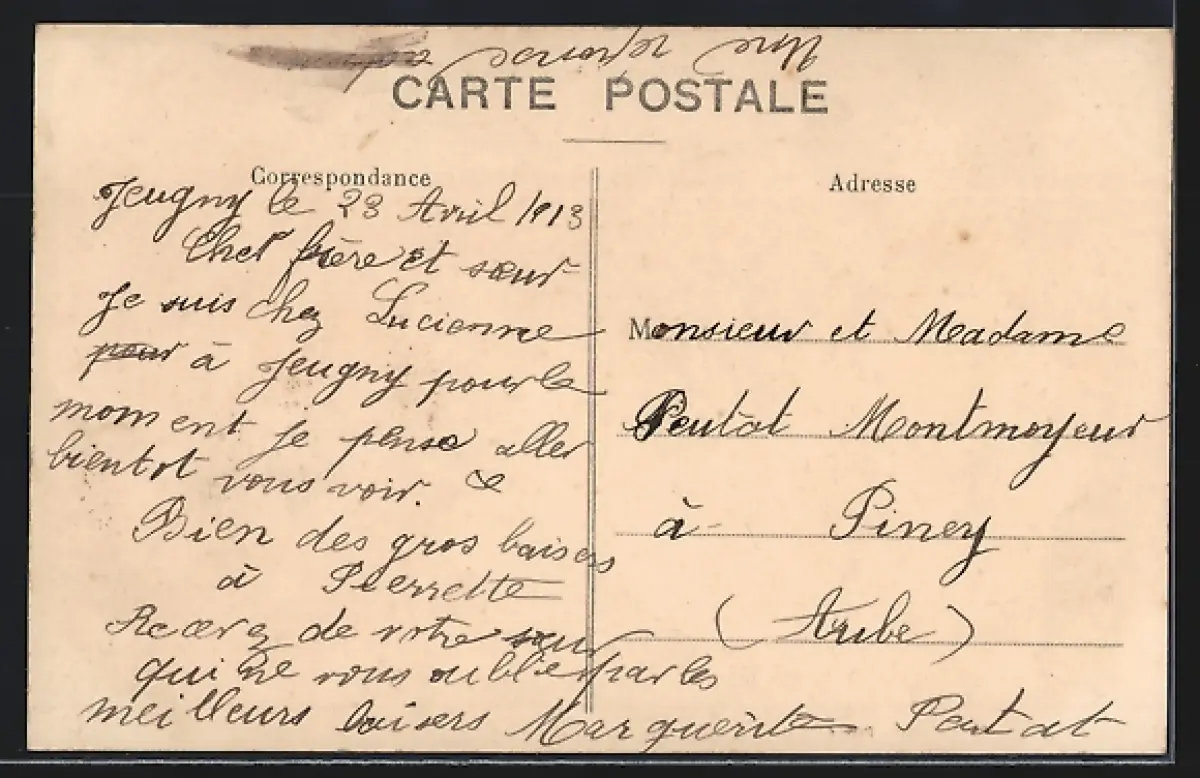 CARTE POSTALE
Correspondance
Jeugny le 23 Avril 1913
Cher frère et sœur
Je suis chez Lucienne
pour à Jeugny pour le
moment je pense aller
bientot vous voir.
Bien des gros baisers
à Pierrette
Recevez de votre sœur
qui ne vous oublie par les
meilleurs baisers Marguerite Peutat
Adresse
Monsieur et Madame
Peutat Montmoyeur
à Piney
(Aube)